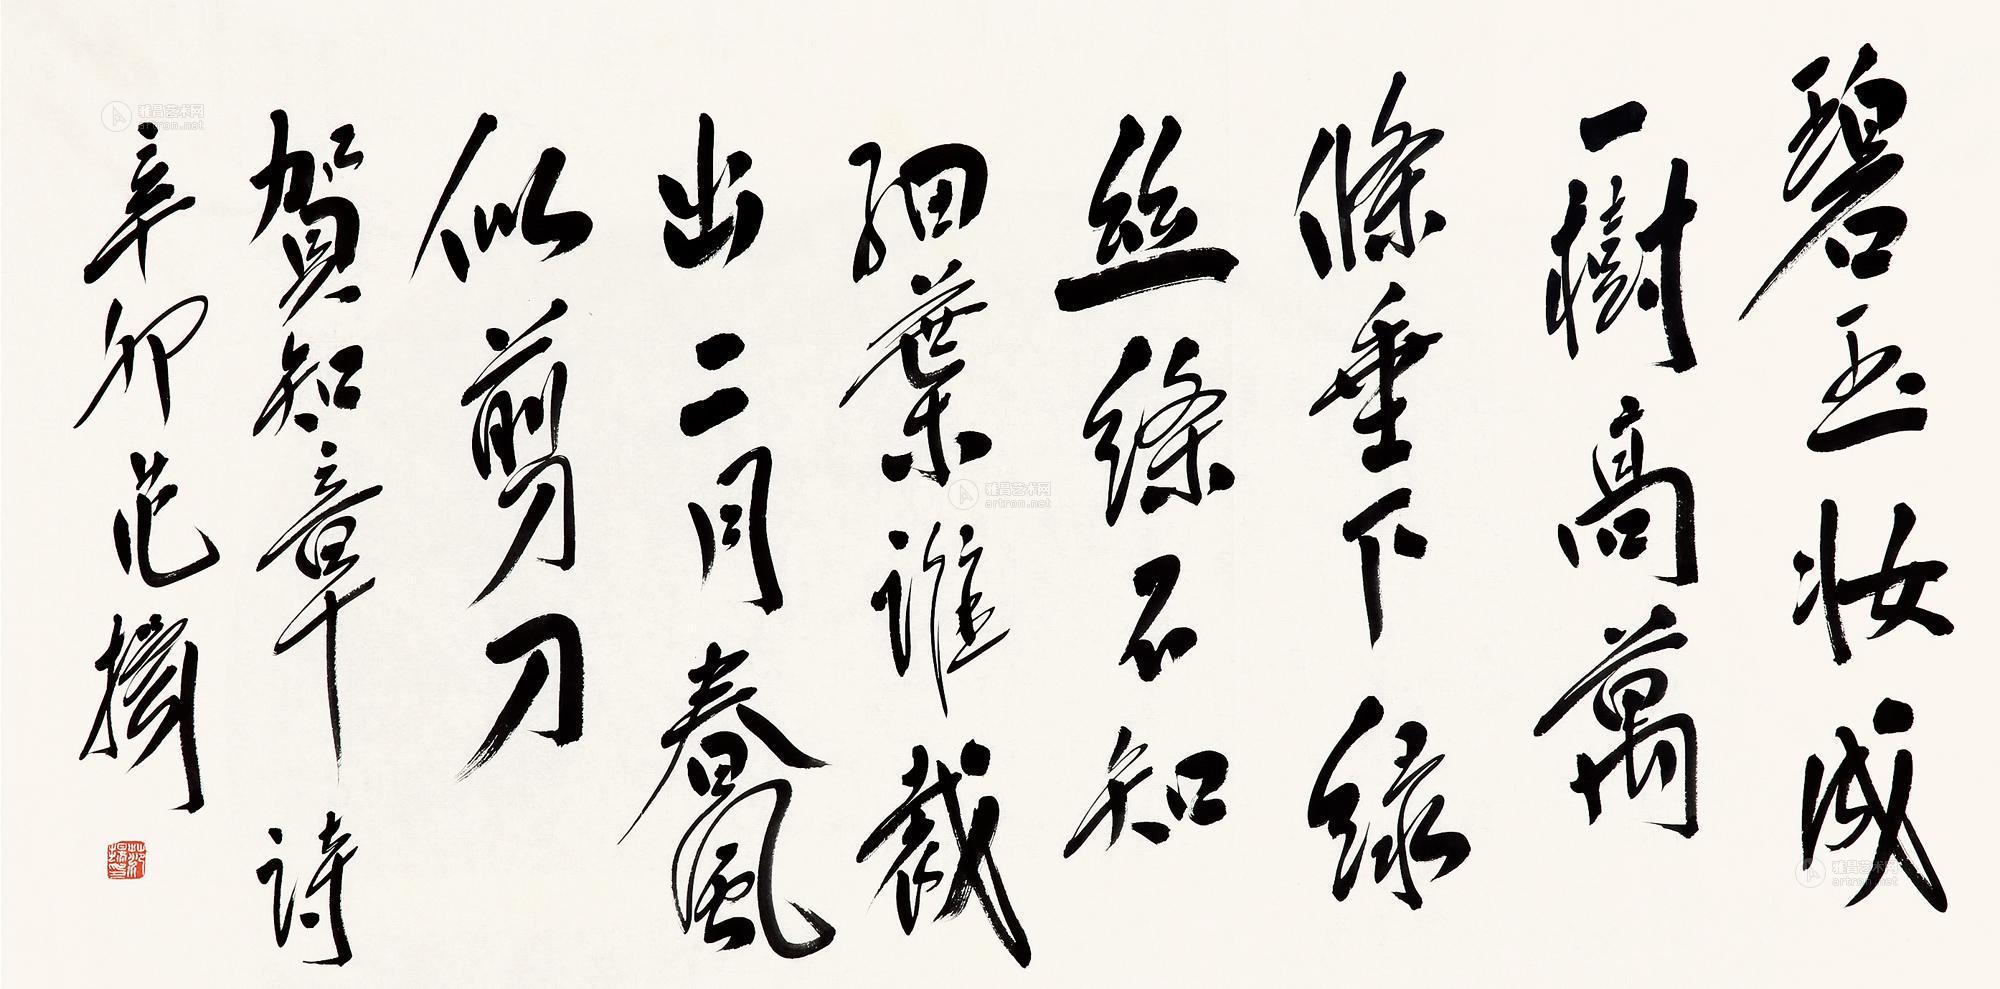 碧玉妝成
一樹高萬
條垂下綠
丝絛不知
細葉誰裁
出二月春風
似剪刀
賀知章詩
辛卯范揚
雅昌艺术网
artron.net
雅昌艺术网
artron.net
雅昌艺术网
artron.net